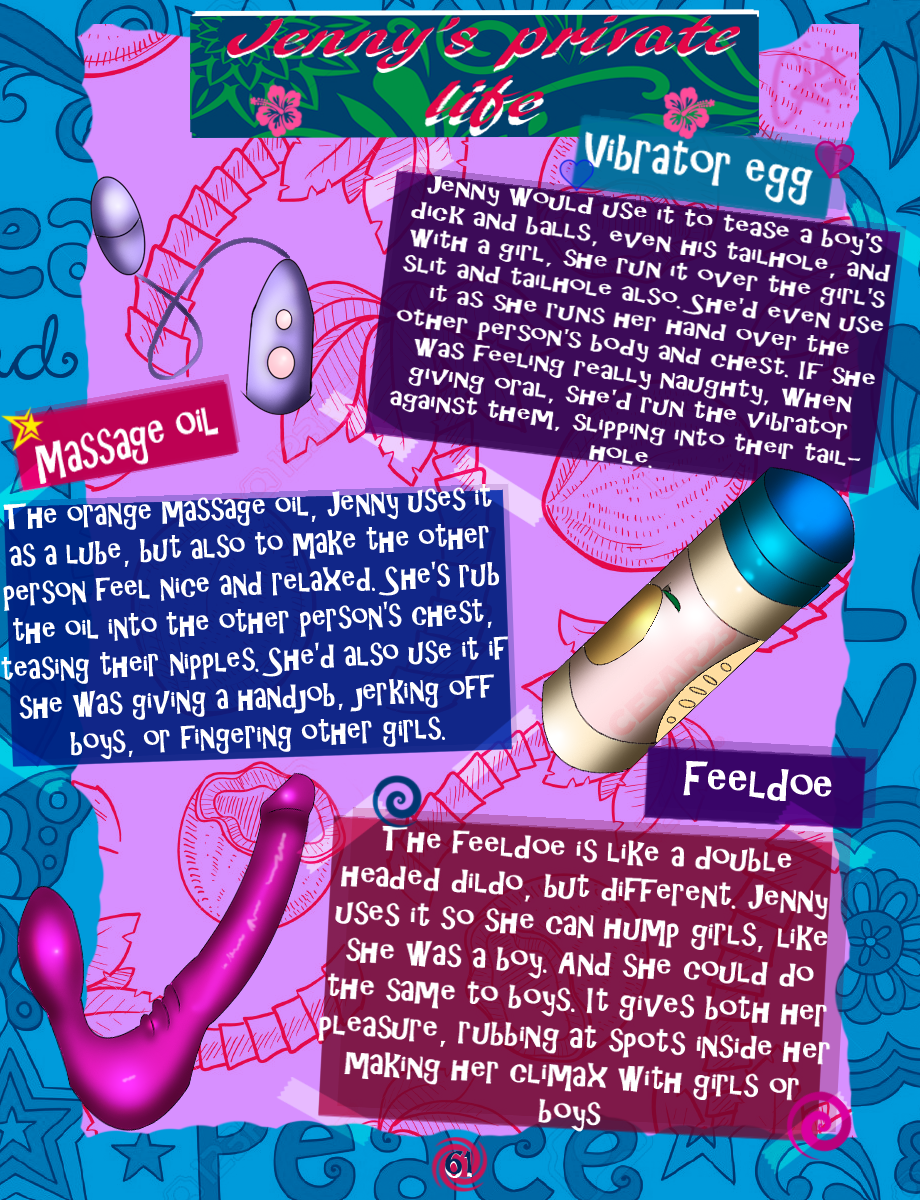 Jenny's private
life
Vibrator egg
Jenny would use it to tease a boy's
dick and balls, even his tailhole, and
with a girl, she run it over the girl's
slit and tailhole also. She'd even use
it as she runs her hand over the
other person's body and chest. If she
was feeling really naughty, when
giving oral, she'd run the vibrator
against them, slipping into their tail-
hole.
Massage oil
The orange massage oil, Jenny uses it
as a lube, but also to make the other
person feel nice and relaxed. She's rub
the oil into the other person's chest,
teasing their nipples. She'd also use it if
she was giving a handjob, jerking off
boys, or fingering other girls.
Feeldoe
The Feeldoe is like a double
headed dildo, but different. Jenny
uses it so she can hump girls, like
she was a boy. And she could do
the same to boys. It gives both her
pleasure, rubbing at spots inside her
making her climax with girls or
boys
Peace
61